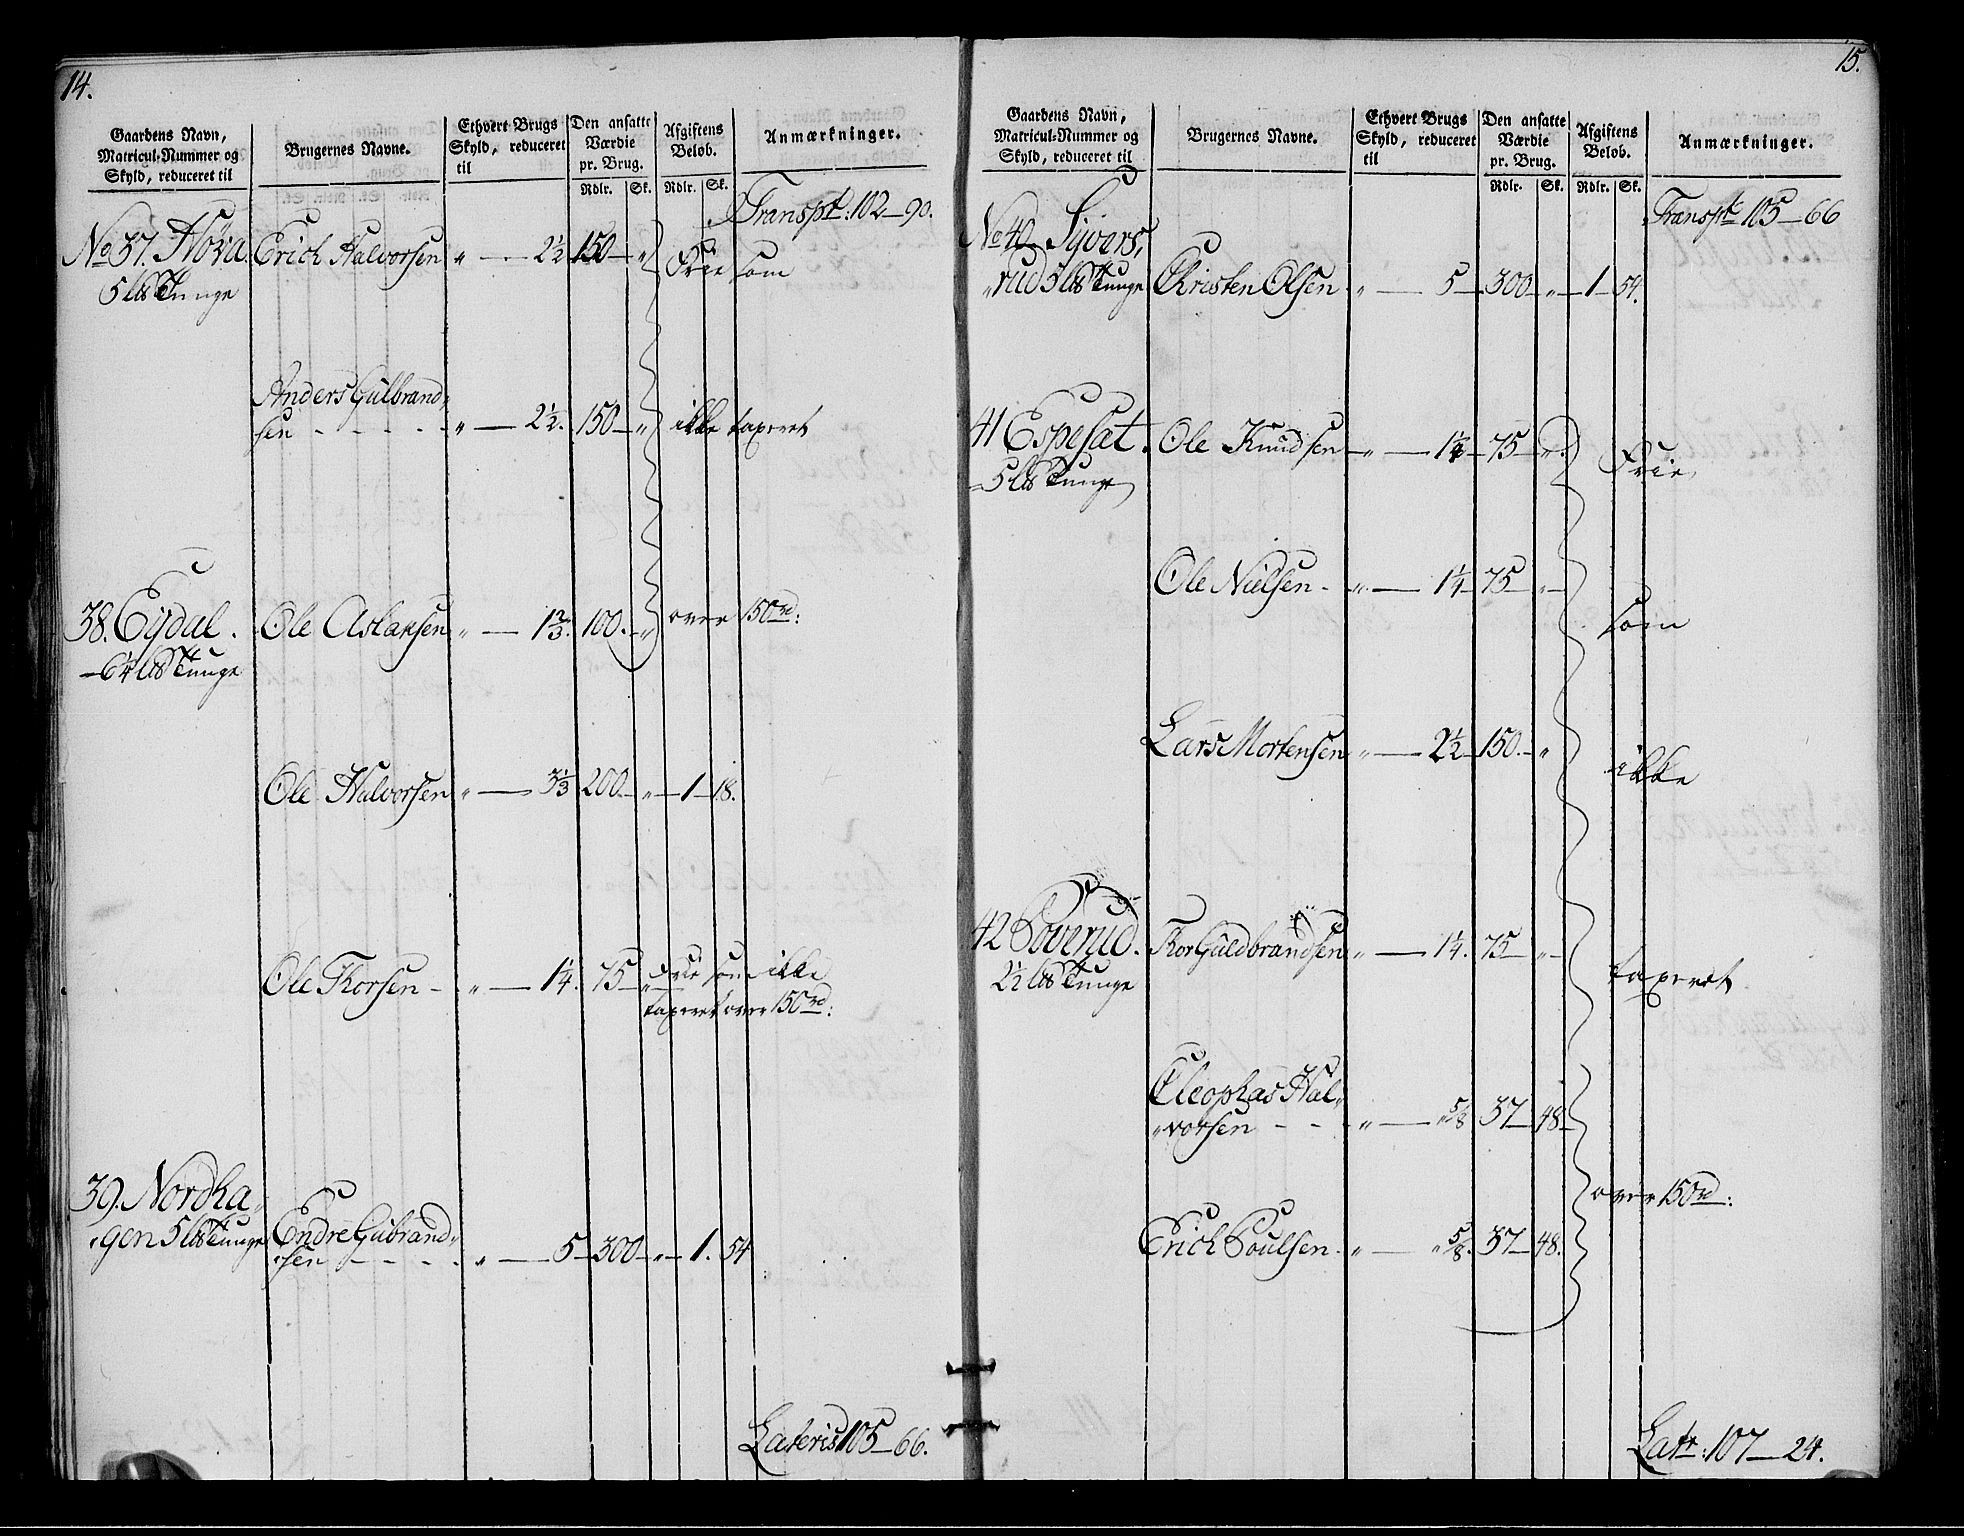 14.
Gaardens Navn, Matricul-Nummer og Skyld, reduceret til
Brugernes Navne.
Ethvert Brugs Skyld, reduceret til
Den ansatte Værdie pr. Brug.
Afgiftens Beløb.
Anmærkninger.
Rdlr. Sk. Rdlr. Sk.
Transpt: 102 — 90.
No 37. Höva Erich Halvorsen „ — 2½ 150 — „ Frie som
5 Tunge
Anders Gulbrand„
sen - - - - „ — 2½. 150 — „ ikke taxeret
38. Eÿdal. Ole Aslaksen „ — 1⅔. 100. — „ over 150rd:
— 6¼ Tunge
Ole Halvorsen „ — 3⅓ 200 — „ — 1 — 18.
Ole Thorsen - „ — 1¼. 75 — „ Frie som ikke
taxeret over 150rd:
39. Nordha„
„gen 5 Tunge Endre Gubrand„
„sen - - - - „ — 5 — 300 — „ — 1. 54
Lateris 105 — 66.
15.
Gaardens Navn, Matricul-Nummer og Skyld, reduceret til
Brugernes Navne.
Ethvert Brugs Skyld, reduceret til
Den ansatte Værdie pr. Brug.
Afgiftens Beløb.
Anmærkninger.
Rdlr. Sk. Rdlr. Sk.
Transpt 105 — 66
No 40. Syvers„
„rud 5 Tunge Christen Olsen „ — 5 — 300 — „ — 1 — 54.
41 Espesæt. Ole Knudsen — „ — 1¼ — 75 — „ Frie
5 Tunge
Ole Nielsen - „ — 1¼ 75 — „ som
Lars Mortensen „ — 2½ 150. — „ ikke
42 Poverud. Thor Guldbrandsen „ — 1¼. 75 — „ taxeret
2½ Tunge
Cleophas Hal„
„vorsen - - - „ — „ ⅝ 37 — 48 —
over 150rd:
Erich Poulsen - „ — „ ⅝. 37 — 48.
Latr: 107 — 24.